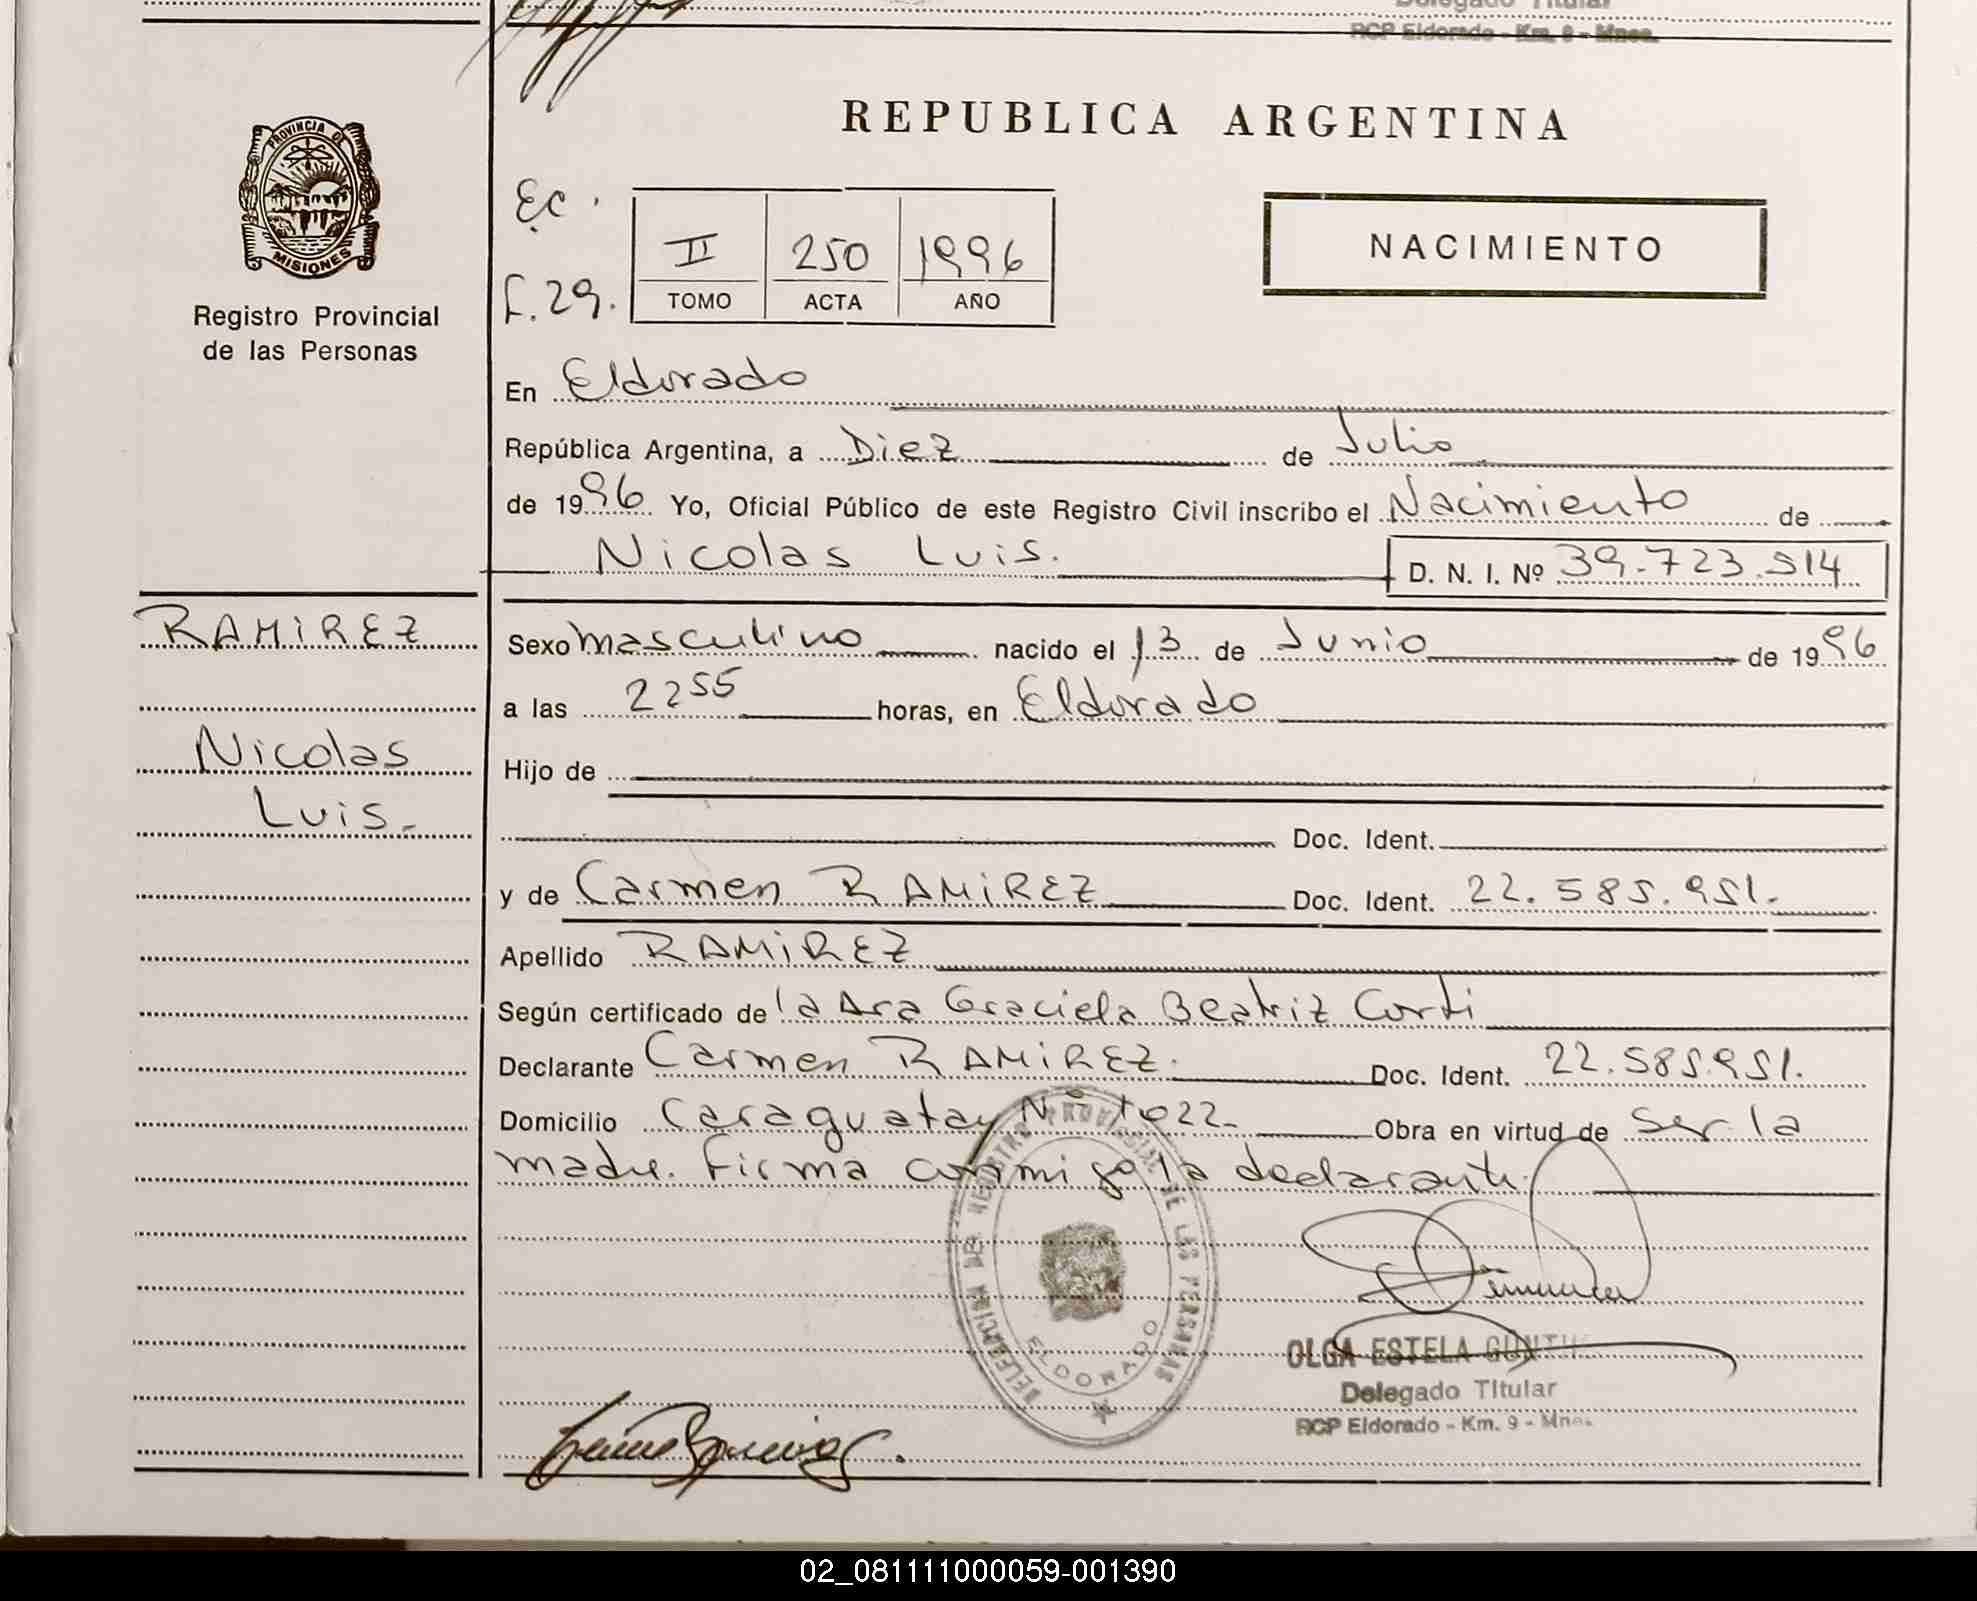 Delegado Titular
RCP Eldorado - Km. 9 - Mnes.
PROVINCIA DE
MISIONES
Registro Provincial
de las Personas
REPUBLICA ARGENTINA
Ec.
F. 29.
II 250 1996
TOMO ACTA AÑO
NACIMIENTO
En Eldorado
República Argentina, a Diez de Julio
de 1996 Yo, Oficial Público de este Registro Civil inscribo el Nacimiento de
Nicolas Luis. D. N. I. Nº 39.723.914
RAMIREZ
Nicolas
Luis.-
Sexo masculino nacido el 13 de Junio de 1996
a las 2255 horas, en Eldorado
Hijo de
Doc. Ident.
y de Carmen RAMIREZ Doc. Ident. 22.585.951.
Apellido RAMIREZ
Según certificado de la Dra Graciela Beatriz Corti
Declarante Carmen RAMIREZ. Doc. Ident. 22.585.951.
Domicilio Caraguatay Nº 1022- Obra en virtud de ser la
madre. Firma conmigo la declarante.
DELEGACION DEL REGISTRO PROVINCIAL DE LAS PERSONAS
ELDORADO
OLGA ESTELA
Delegado Titular
RCP Eldorado - Km. 9 - Mnes.
02_081111000059-001390